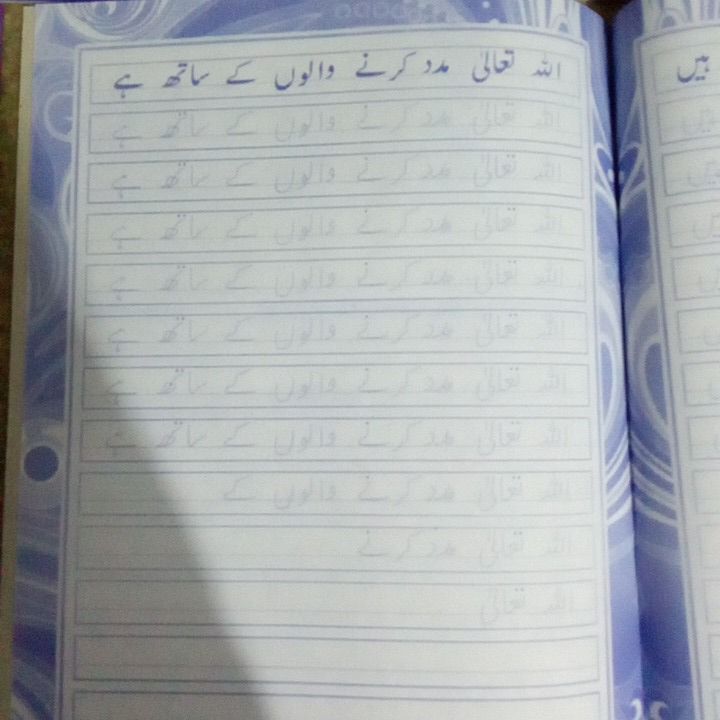 اللہ تعالیٰ مدد کرنے والوں کے ساتھ ہے
اللہ تعالیٰ مدد کرنے والوں کے ساتھ ہے
اللہ تعالیٰ مدد کرنے والوں کے ساتھ ہے
اللہ تعالیٰ مدد کرنے والوں کے ساتھ ہے
اللہ تعالیٰ مدد کرنے والوں کے ساتھ ہے
اللہ تعالیٰ مدد کرنے والوں کے ساتھ ہے
اللہ تعالیٰ مدد کرنے والوں کے ساتھ ہے
اللہ تعالیٰ مدد کرنے والوں کے ساتھ ہے
اللہ تعالیٰ مدد کرنے والوں کے
اللہ تعالیٰ مدد کرنے
اللہ تعالیٰ
ہیں